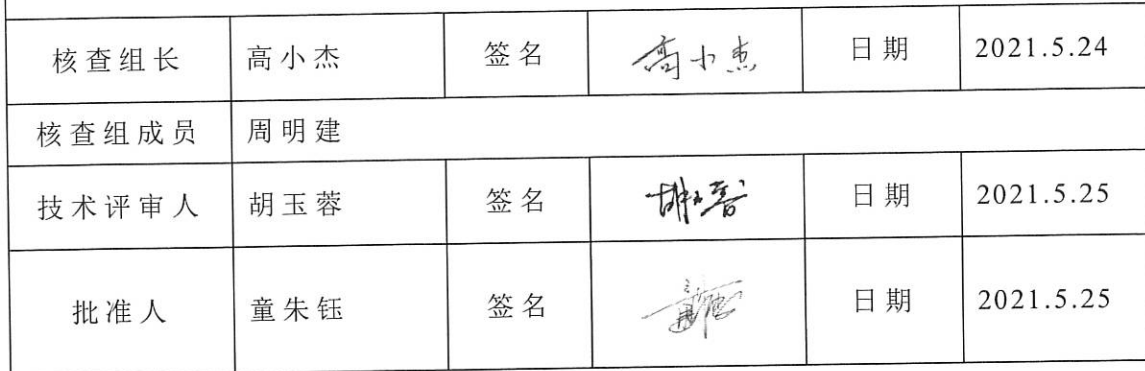 核查组长 高小杰 签名 高小杰 日期 2021.5.24
核查组成员 周明建
技术评审人 胡玉蓉 签名 胡玉蓉 日期 2021.5.25
批准人 童朱钰 签名 日期 2021.5.25